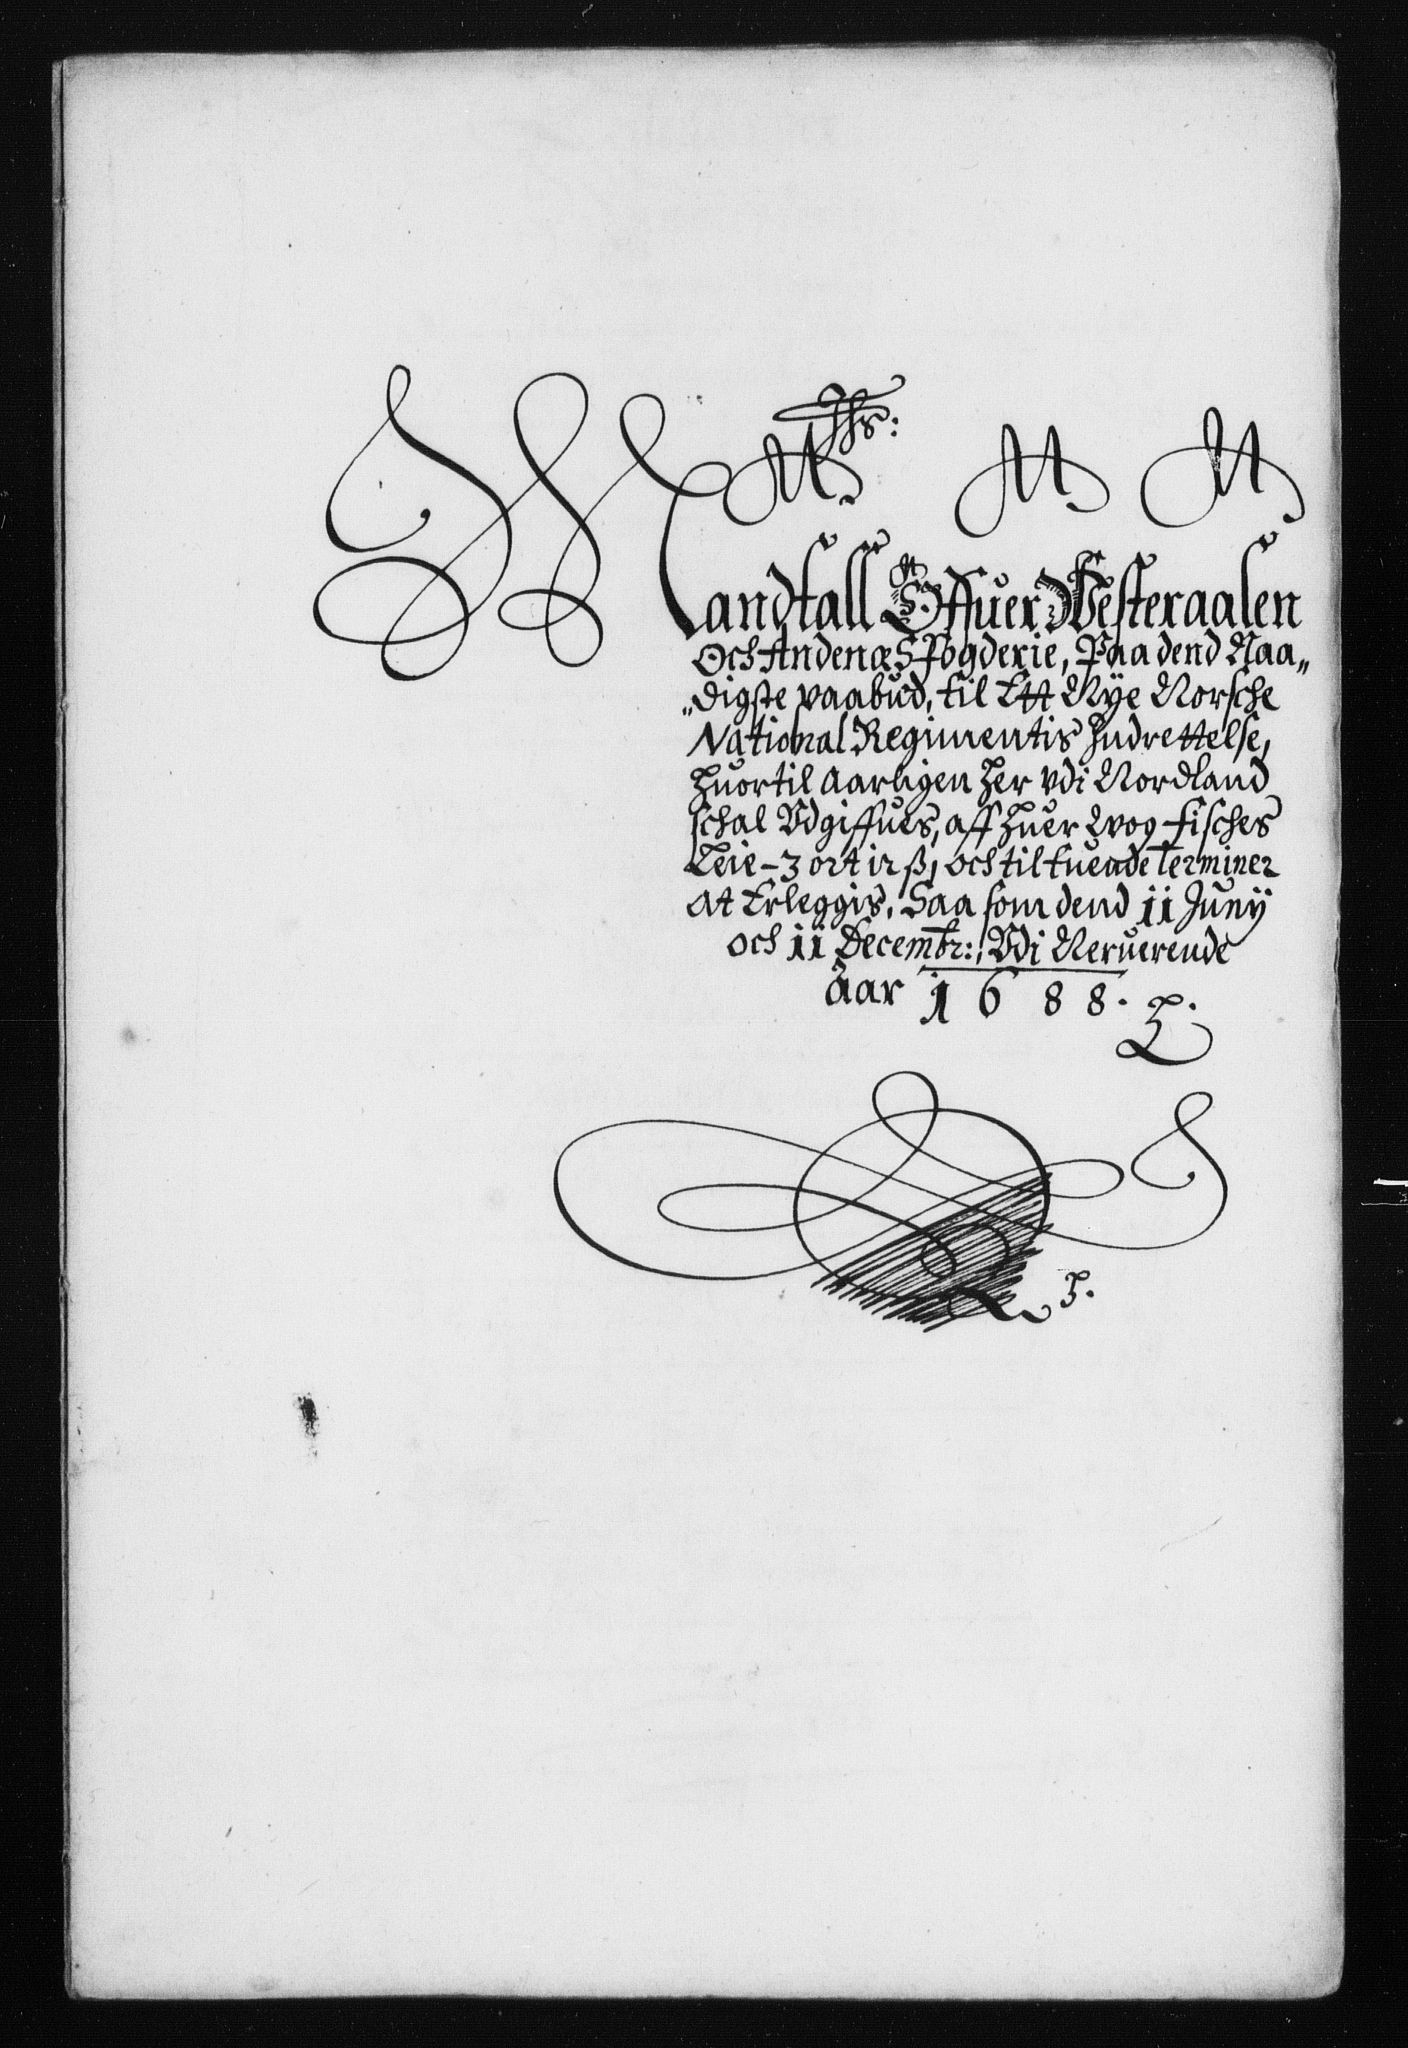 Jhs:
Mandtall Offuer Westeraalen
Och Andenæs Fogderie, Paa dend Naa„
„digste paabud, til Ett Nye Norsche
National Regimentis Indrettelse,
Huortil Aarligen Her vdi Nordland
schal Vdgiffues, aff Huer Wog fisches
Leie - 3 ort ir ß, och til tuende Terminer
at Erleggis, Saa som dend 11 Juny
och 11 Decembr:, Vdi Neruerende
Aar 1688.